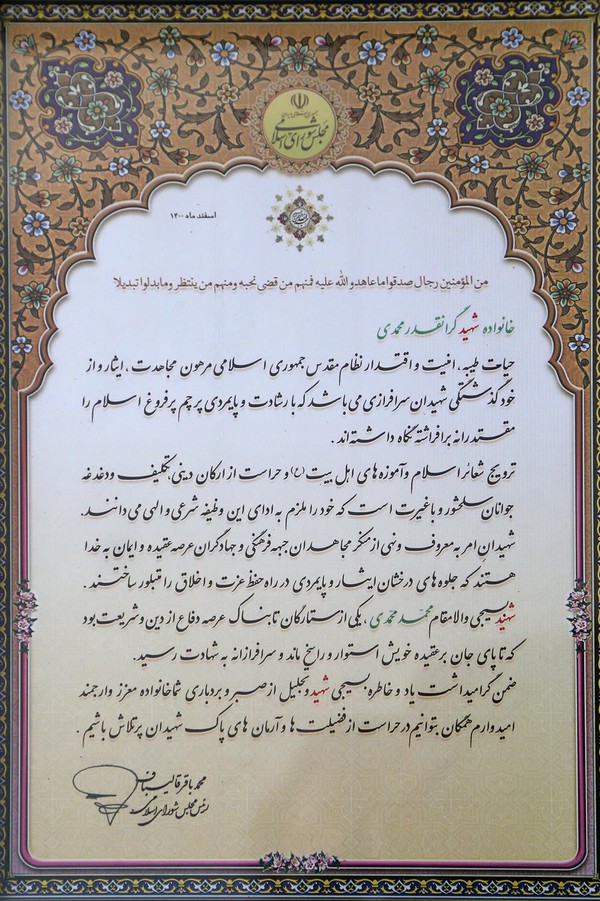 مجلس شورای اسلامی
اسفند ماه ۱۴۰۰
من المؤمنین رجال صدقوا ما عاهدو الله علیه فمنهم من قضی نحبه ومنهم من ینتظر وما بدلوا تبدیلا
خانواده شهید گرانقدر محمدی
حیات طیبه، امنیت و اقتدار نظام مقدس جمهوری اسلامی مرهون مجاهدت، ایثار و از
خودگذشتگی شهیدان سرافرازی می باشد که با رشادت و پایمردی پرچم پرفروغ اسلام را
مقتدرانه برافراشته نگاه داشته اند.
ترویج شعائر اسلام وآموزه های اهل بیت (ع) و حراست از ارکان دینی، تکلیف ودغدغه
جوانان سلحشور و باغیرت است که خود را ملزم به ادای این وظیفه شرعی و الهی می دانند.
شهیدان امر به معروف و نهی از منکر مجاهدان جبهه فرهنگی و جهادگران عرصه عقیده و ایمان به خدا
هستند که جلوه های درخشان ایثار و پایمردی در راه حفظ عزت و اخلاق را متبلور ساختند.
شهید بسیجی والامقام محمد محمدی، یکی از ستارگان تابناک عرصه دفاع از دین و شریعت بود
که تا پای جان بر عقیده خویش استوار و راسخ ماند و سرافرازانه به شهادت رسید.
ضمن گرامیداشت یاد و خاطره بسیجی شهید وتجلیل از صبر و بردباری شما خانواده معزز و ارجمند
امیدوارم همگان بتوانیم در حراست از فضیلت ها و آرمان های پاک شهیدان پرتلاش باشیم.
محمد باقر قالیباف
رئیس مجلس شورای اسلامی